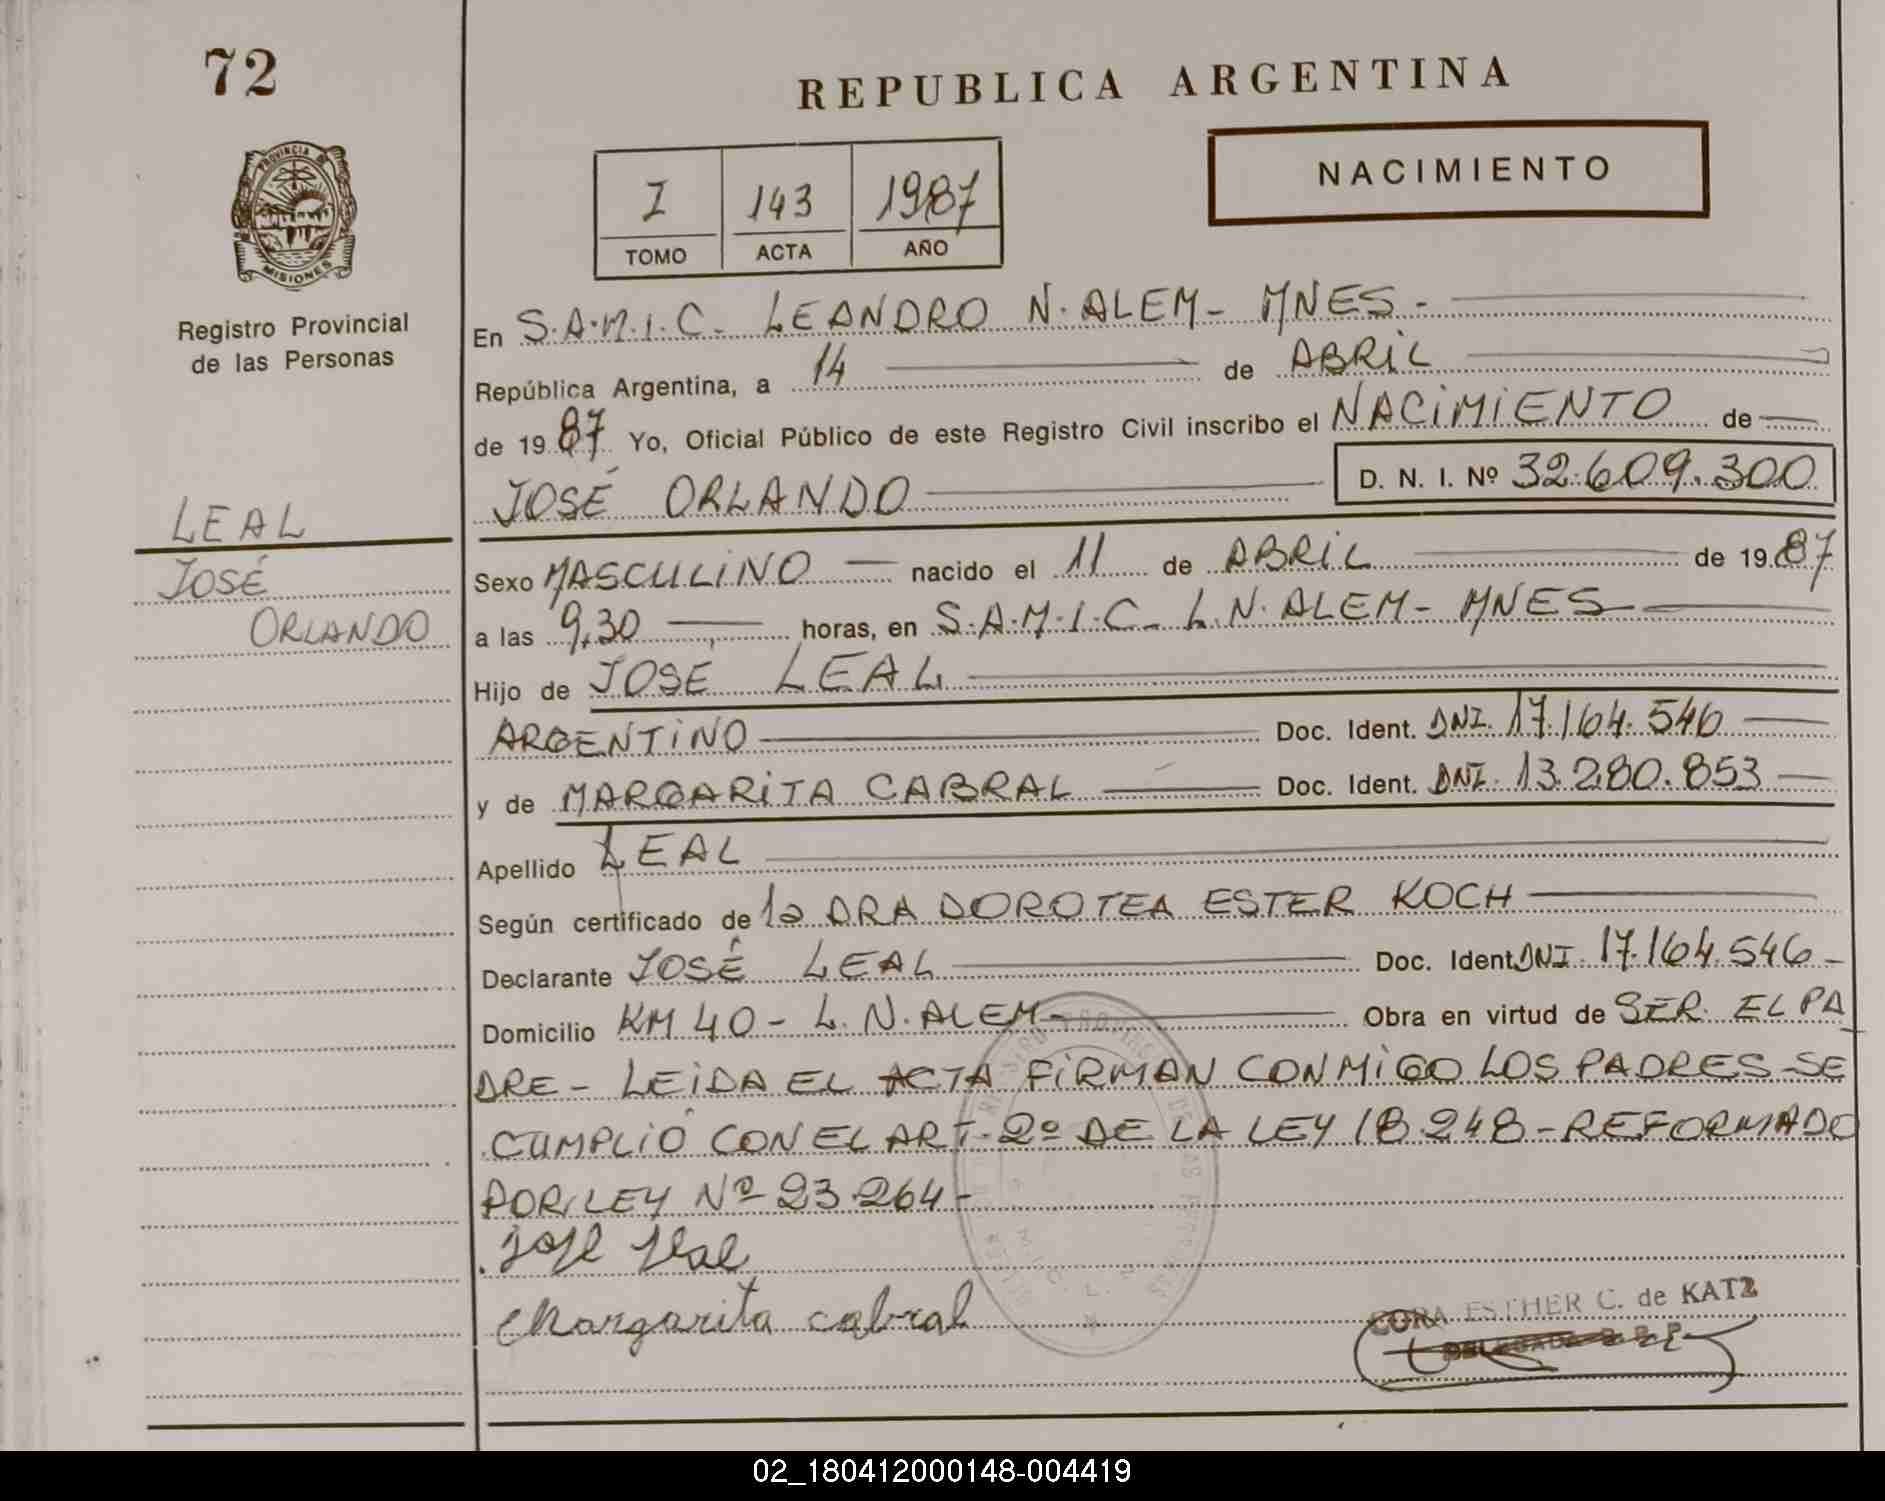 72
REPUBLICA ARGENTINA
PROVINCIA DE
MISIONES
Registro Provincial
de las Personas
NACIMIENTO
I 143 1987
TOMO ACTA AÑO
En S.A.M.I.C. LEANDRO N. ALEM - MNES -
República Argentina, a 14 de ABRIL
de 19 87 Yo, Oficial Público de este Registro Civil inscribo el NACIMIENTO de
JOSÉ ORLANDO D. N. I. Nº 32.609.300
LEAL
JOSÉ
ORLANDO
Sexo MASCULINO nacido el 11 de ABRIL de 19 87
a las 9,30 horas, en S.A.M.I.C. L.N. ALEM - MNES
Hijo de JOSÉ LEAL
ARGENTINO Doc. Ident. DNI. 17.164.546
y de MARGARITA CABRAL Doc. Ident. DNI. 13.280.853
Apellido LEAL
Según certificado de la DRA DOROTEA ESTER KOCH
Declarante JOSÉ LEAL Doc. Ident. DNI. 17.164.546 -
Domicilio KM 40 - L. N. ALEM - Obra en virtud de SER EL PA
DRE - LEIDA EL ACTA FIRMAN CONMIGO LOS PADRES - SE
CUMPLIÓ CON EL ART. 2º DE LA LEY 18.248 - REFORMADO
POR LEY Nº 23.264 -
José Leal
Margarita cabral
CORA ESTHER C. de KATZ
02_180412000148-004419